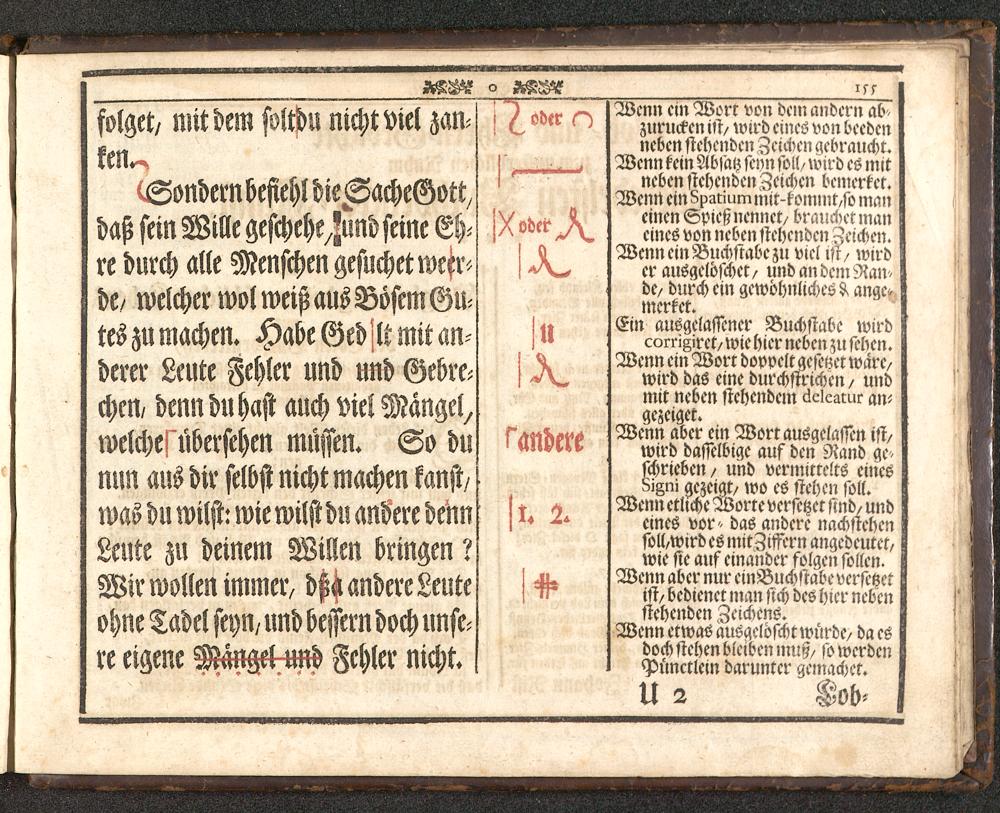 155
folget, mit dem soltdu nicht viel zan-
ken.
Sondern befiehl die Sache Gott,
daß sein Wille geschehe, und seine Eh-
re durch alle Menschen gesuchet weer-
de, welcher wol weiß aus Bösem Gu-
tes zu machen. Habe Ged lt mit an-
derer Leute Fehler und und Gebre-
chen, denn du hast auch viel Mängel,
welche übersehen müssen. So du
nun aus dir selbst nicht machen kanst,
was du wilst: wie wilst du andere denn
Leute zu deinem Willen bringen ?
Wir wollen immer, dßa andere Leute
ohne Tadel seyn, und bessern doch unse-
re eigene Mängel und Fehler nicht.
oder
X oder
u
andere
1. 2.
Wenn ein Wort von dem andern ab-
zurucken ist, wird eines von beeden
neben stehenden Zeichen gebraucht.
Wenn kein Absatz seyn soll, wird es mit
neben stehenden Zeichen bemerket.
Wenn ein Spatium mit-kommt/ so man
einen Spieß nennet, brauchet man
eines von neben stehenden Zeichen.
Wenn ein Buchstabe zu viel ist, wird
er ausgelöschet, und an dem Ran-
de, durch ein gewöhnliches ₰ ange-
merket.
Ein ausgelassener Buchstabe wird
corrigiret, wie hier neben zu sehen.
Wenn ein Wort doppelt gesetzet wäre,
wird das eine durchstrichen, und
mit neben stehendem deleatur an-
gezeiget.
Wenn aber ein Wort ausgelassen ist,
wird dasselbige auf den Rand ge-
schrieben, und vermittelts eines
Signi gezeigt, wo es stehen soll.
Wenn etliche Worte versetzet sind, und
eines vor- das andere nachstehen
soll, wird es mit Ziffern angedeutet,
wie sie auf einander folgen sollen.
Wenn aber nur ein Buchstabe versetzet
ist, bedienet man sich des hier neben
stehenden Zeichens.
Wenn etwas ausgelöscht würde, da es
doch stehen bleiben muß, so werden
Pünctlein darunter gemachet.
U 2 Lob-